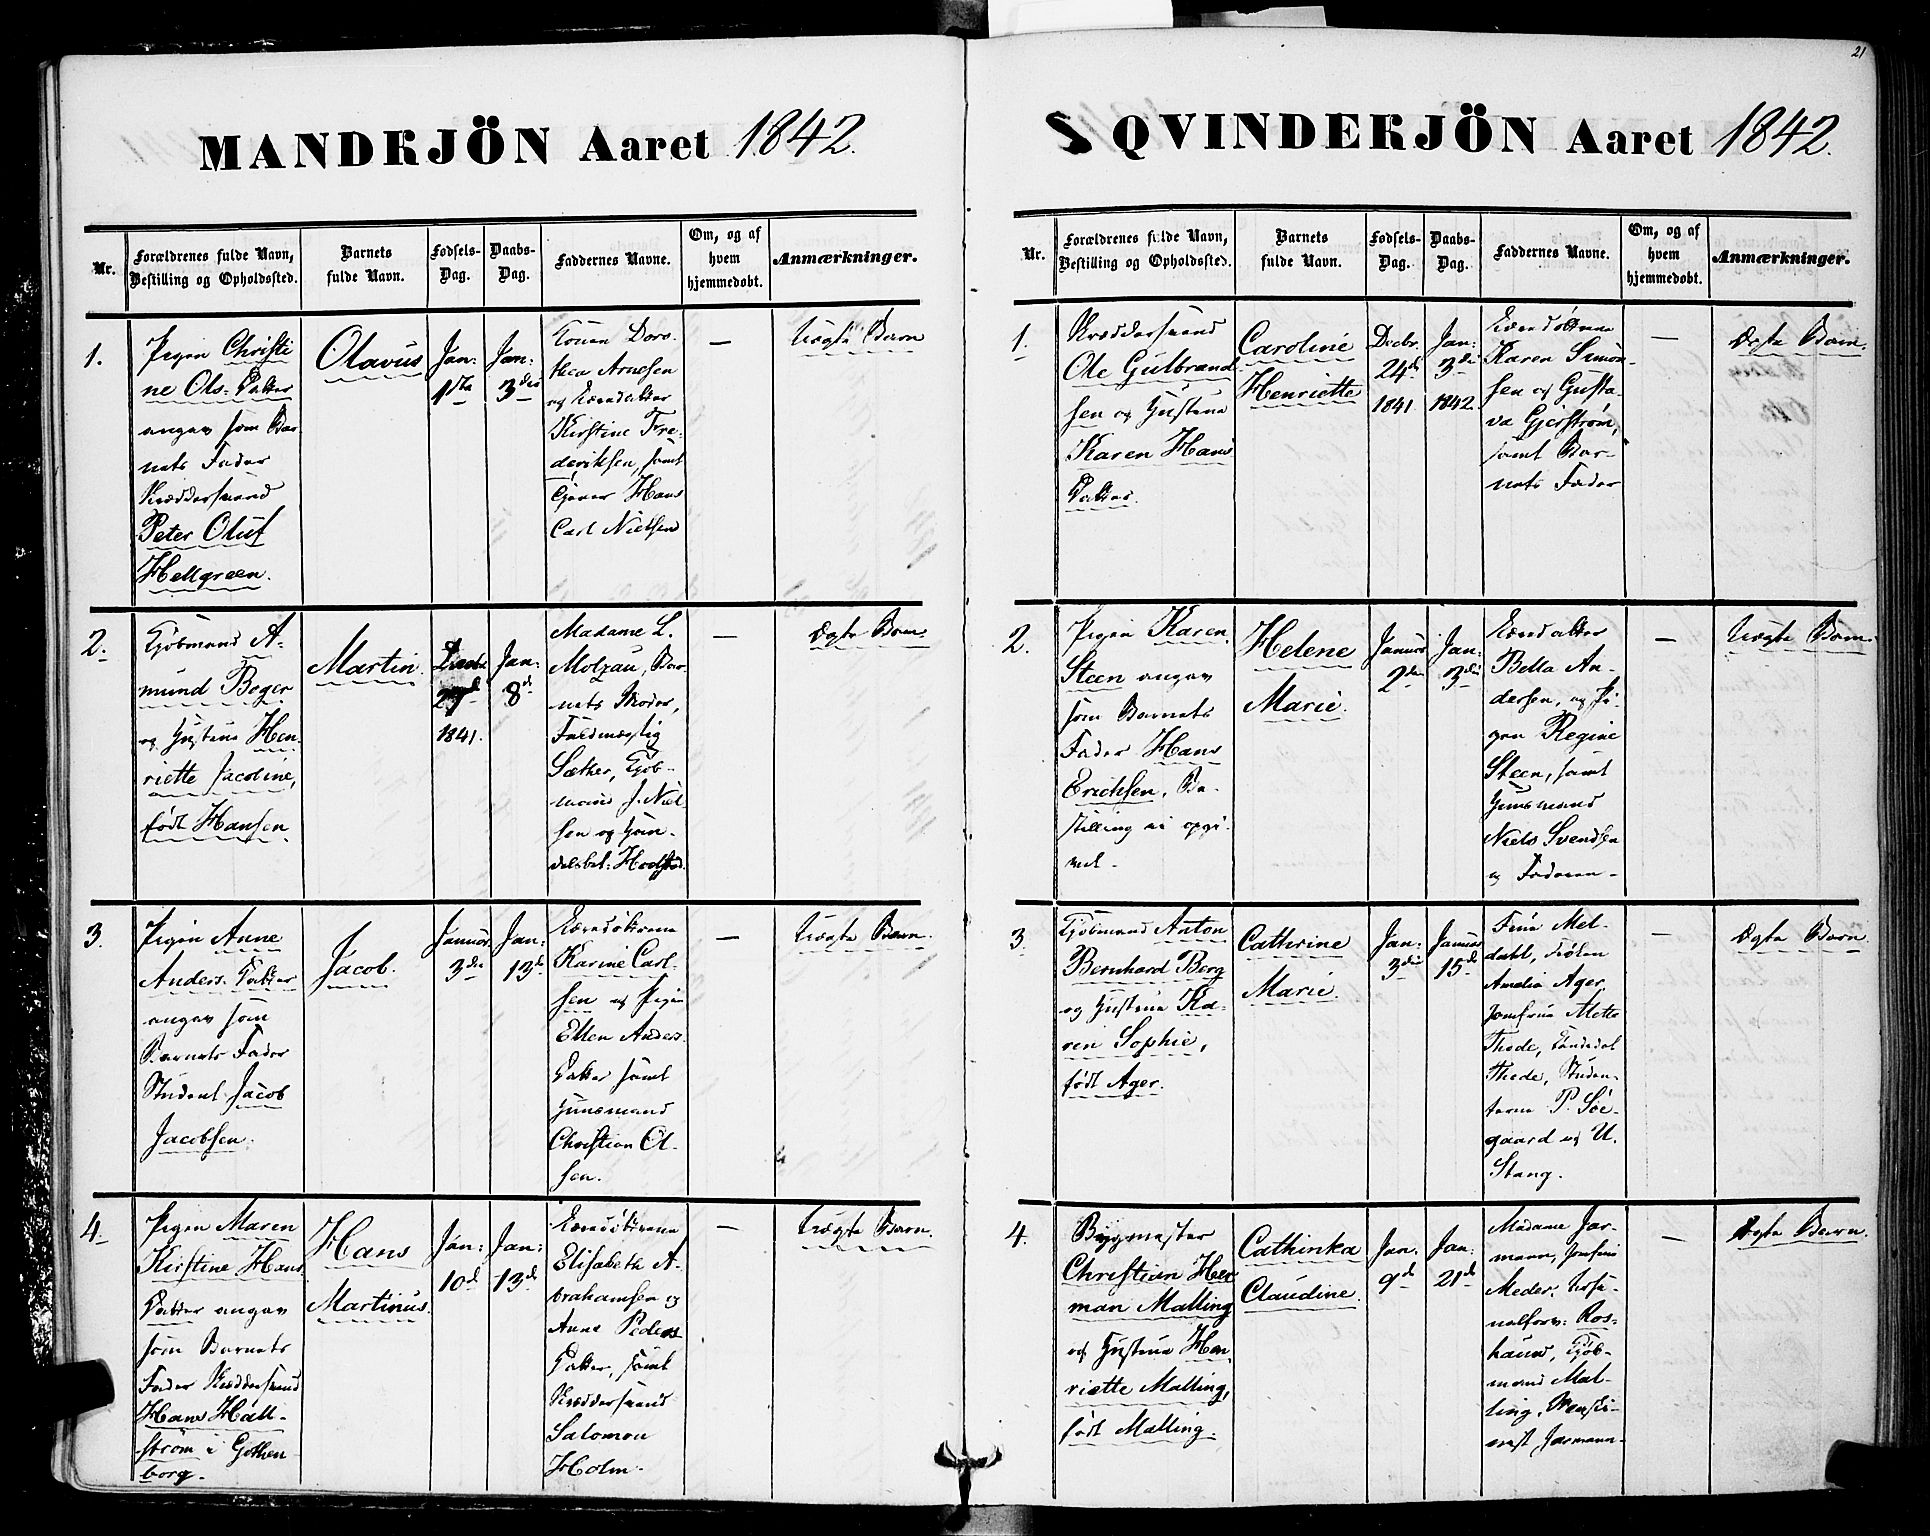 21
MANDKJÖN Aaret 1842.
Nr.
Forældrenes fulde Navn,
Bestilling og Opholdssted.
Barnets
fulde Navn.
Fødsels-
Dag.
Daabs-
Dag.
Faddernes Navne.
Om, og af
hvem
hjemmedøbt.
Anmærkninger.
1.
Pigen Christi
ne Ols-Datter
angav som Bar
nets Fader
Skræddersvend
Peter Oluf
Hellgreen.
Olavus
Jan:
1ste
Jan:
3die
Konen Doro
thea Arnesen
og Eiendatter
Kirstine Fre-
deriksen, samt
Hans
Carl Nielsen
—
Uægte Barn
2.
Kjøbmand A-
mund Boger
og Hustrue Hen
riette Jacobine,
født Hansen.
Martin.
Decbr
27d
1841.
Jan:
8d
Madame L.
Molzau, Bar
nets Moder,
Fuldmægtig
Sæther, Kjøb-
mand J. Niel
sen og Han-
delsbet:
—
Ægte Barn.
3.
Pigen Anne
Anders-Datter
angav som
Barnets Fader
Student Jacob
Jacobsen.
Jacob.
Januar
3die
Jan:
13d
Karine Carl-
sen og Pigen
Ellen Anders
Datter samt
Huusmand
Christian Ol-
sen.
—
Uægte Barn.
4.
Pigen Maren
Kirstine Hans
Datter angav
som Barnets
Fader Skræddersvend
Hans Häll-
ström i Gothen
borg.
Hans
Martinus.
Jan:
10d
Jan:
13d
Elisabeth A-
brahamsen og
Anne Peders
Datter, samt
Skræddersvend
Salomon
Holm.
—
Uægte Barn.
QVINDEKJÖN Aaret 1842.
Nr.
Forældrenes fulde Navn,
Bestilling og Opholdssted.
Barnets
fulde Navn.
Fødsels-
Dag.
Daabs-
Dag.
Faddernes Navne.
Om, og af
hvem
hjemmedøbt.
Anmærkninger.
1.
Skræddersvend
Ole Gulbrand
sen og Hustrue
Karen Hans
Datter.
Caroline
Henriette
Decbr.
24d
1841
Jan:
3die
1842.
Karen Simon
sen og Gusta-
va Gjerstrøm,
samt Bar-
nets Fader
—
Ægte Barn.
2.
Pigen Karen
Steen angav
som Barnets
Fader Hans
Erichsen, Be-
stilling ei opgi-
vet.
Helene
Marie.
Januar
2den
Jan:
3die
Bella An-
dersen, og Pi-
gen Regine
Steen, samt
Huusmand
Niels Svendsen
og Faderen.
—
Uægte Barn.
3.
Kjøbmand Anton
Bernhard Berg
og Hustrue Ka-
ren Sophie,
født Ager.
Cathrine
Marie.
Jan:
3die
Januar
15d
Frue Mel-
dahl, Frøken
Amalia Ager,
Jomfrue Mette
Thode, Candidat
Thode, Studen-
terne P. Søe-
gaard og U.
Stang.
—
Ægte Barn
4.
Bygmester
Christian Her
man Malling
og Hustrue Hen-
riette Malling,
født Malling.
Cathinka
Claudine.
Jan:
9d
Jan:
21d
Madame Jar-
mann, Jomfrue
Meder,
Ros-
haus, Kjøb-
mand Mal-
ling,
Jarmann.
—
Ægte Barn.